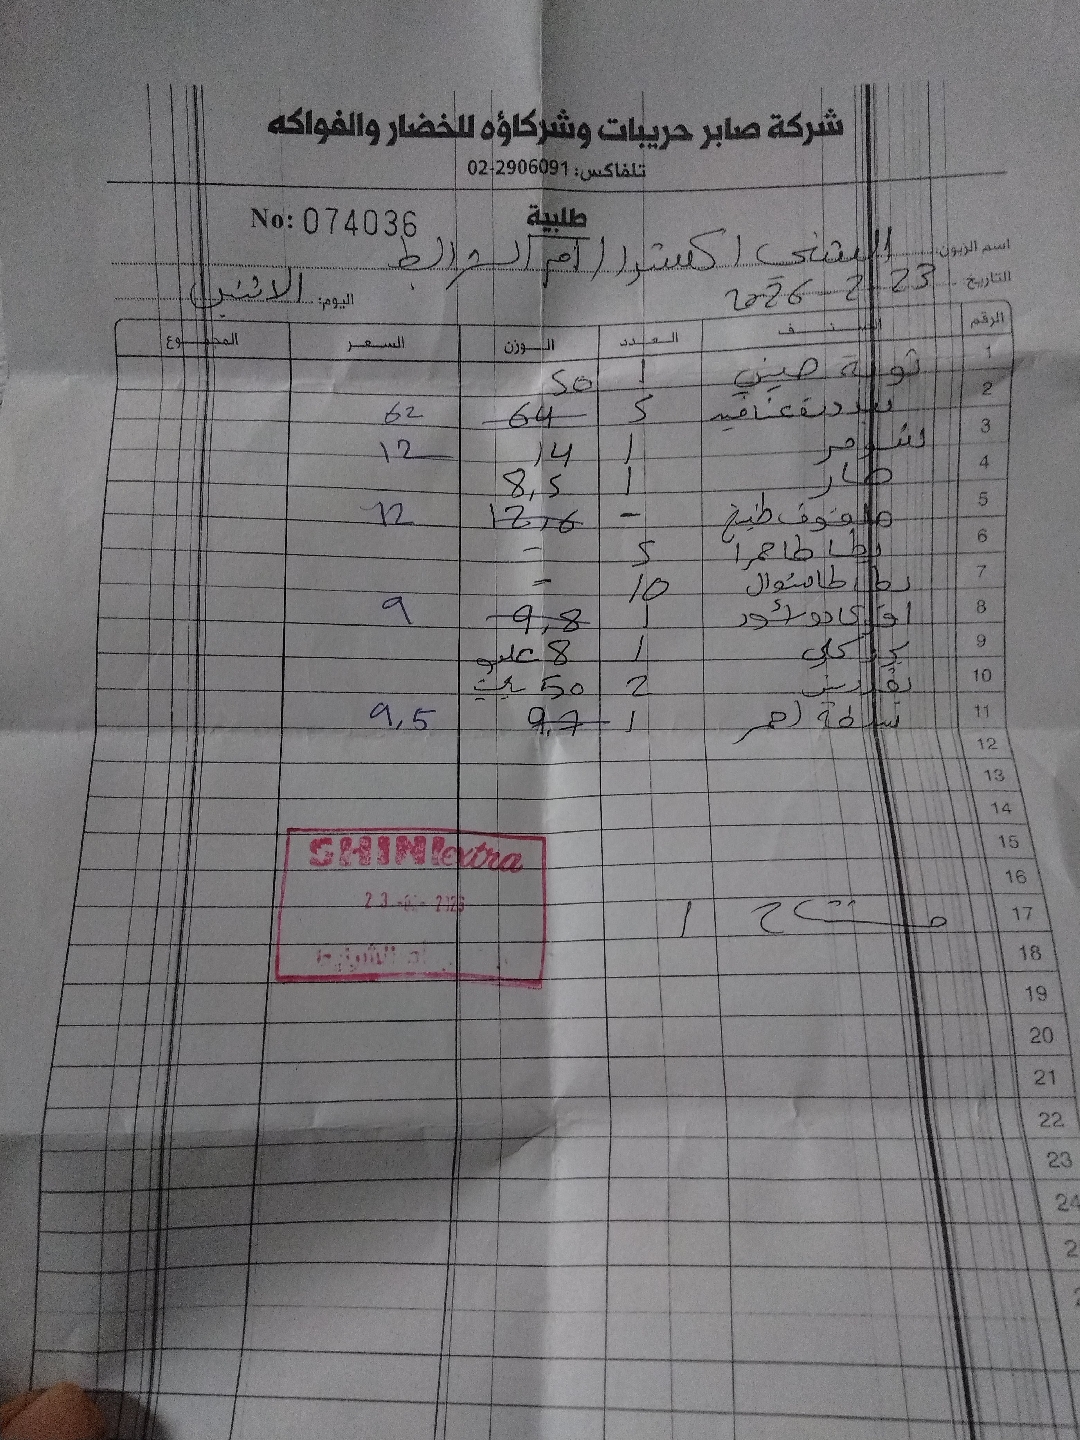 شركة صابر حريبات وشركاؤه للخضار والفواكه
تلفاكس: 02-2906091
طلبية
No: 074036
اسم الزبون: الشني اكسترا / ام الشرايط
التاريخ 23-2-2026
اليوم: الاثنين
الرقم الصنف العدد الوزن السعر المجموع
1 ثومة صيني 1 50
2 بندورة عناقيد 5 64 62
3 شومر 1 14 12
4 1 8,5
5 ملفوف طبيخ - 12,6 12
6 بطاطا حمرا 5 -
7 بطاطا 10 -
8 افوكادو 1 9,8 9
9 1 8 علب
10 بقدونس 2 50
11 شطة احمر 1 9,7 9,5
12
13
14
15
16
17 مشتاح 1
18
19
20
21
22
23
24
SHINI extra
23 -02- 2026
ام الشرايط